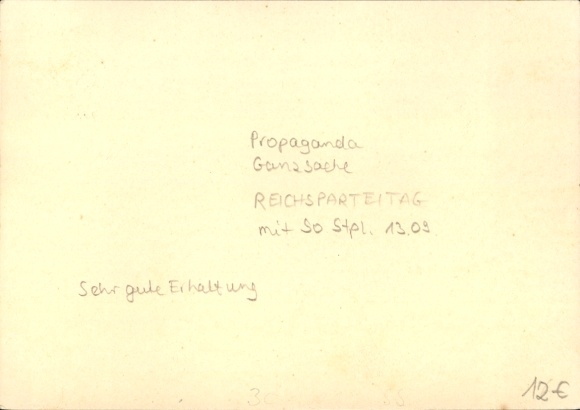 Propaganda
Ganzsache
REICHSPARTEITAG
mit So Stpl. 13.09
Sehr gute Erhaltung
12€